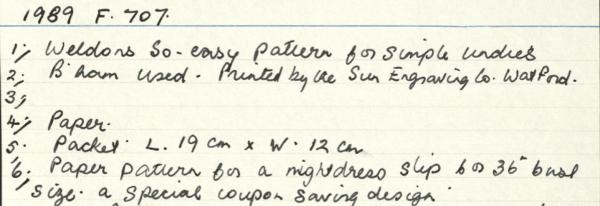 1989 F. 707.
1; Weldons So-easy pattern for simple undies
2; B'ham used. Printed by the Sun Engraving Co. Watford.
3;
4; Paper.
5. Packet. L. 19 cm x W. 12 cm
6. Paper pattern for a nightdress slip for 36" bust
size. a special coupon saving design